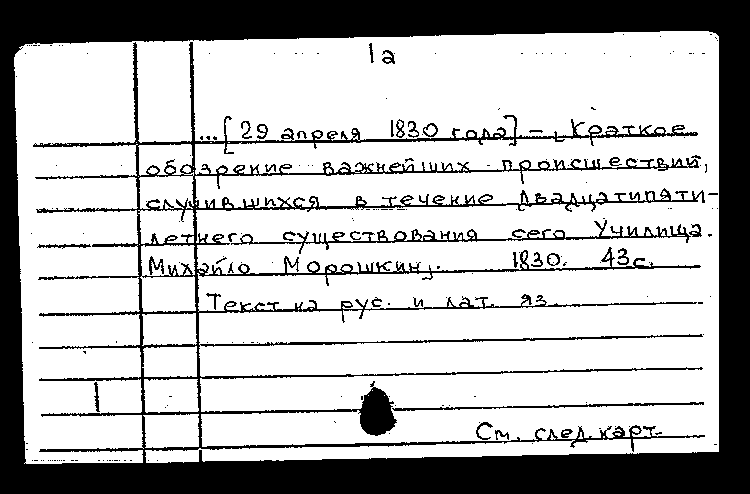 1а
...[29 апреля 1830 года] – Краткое
обозрение важнейших происшествий,
случившихся в течение двадцатипяти-
летнего существования сего Училища.
Михайло Морошкин. 1830. 43с.
Текст на рус. и лат. яз.
См. след. карт.